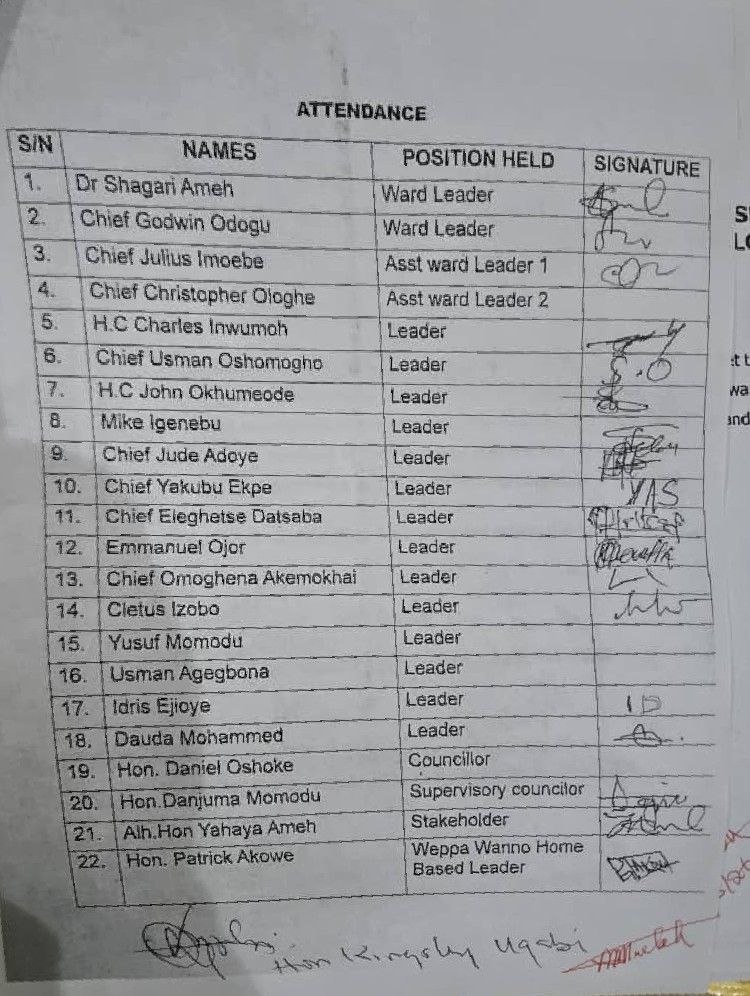 ATTENDANCE
S/N NAMES POSITION HELD SIGNATURE
1. Dr Shagari Ameh Ward Leader
2. Chief Godwin Odogu Ward Leader
3. Chief Julius Imoebe Asst ward Leader 1
4. Chief Christopher Ologhe Asst ward Leader 2
5. H.C Charles Inwumoh Leader
6. Chief Usman Oshomogho Leader S.O
7. H.C John Okhumeode Leader
8. Mike Igenebu Leader
9. Chief Jude Adoye Leader
10. Chief Yakubu Ekpe Leader YAS
11. Chief Eleghetse Datsaba Leader
12. Emmanuel Ojor Leader
13. Chief Omoghena Akemokhai Leader
14. Cletus Izobo Leader
15. Yusuf Momodu Leader
16. Usman Agegbona Leader
17. Idris Ejioye Leader ID
18. Dauda Mohammed Leader
19. Hon. Daniel Oshoke Councillor
20. Hon.Danjuma Momodu Supervisory councilor
21. Alh.Hon Yahaya Ameh Stakeholder
22. Hon. Patrick Akowe Weppa Wanno Home
Based Leader
Hon Kingsley Ugabi